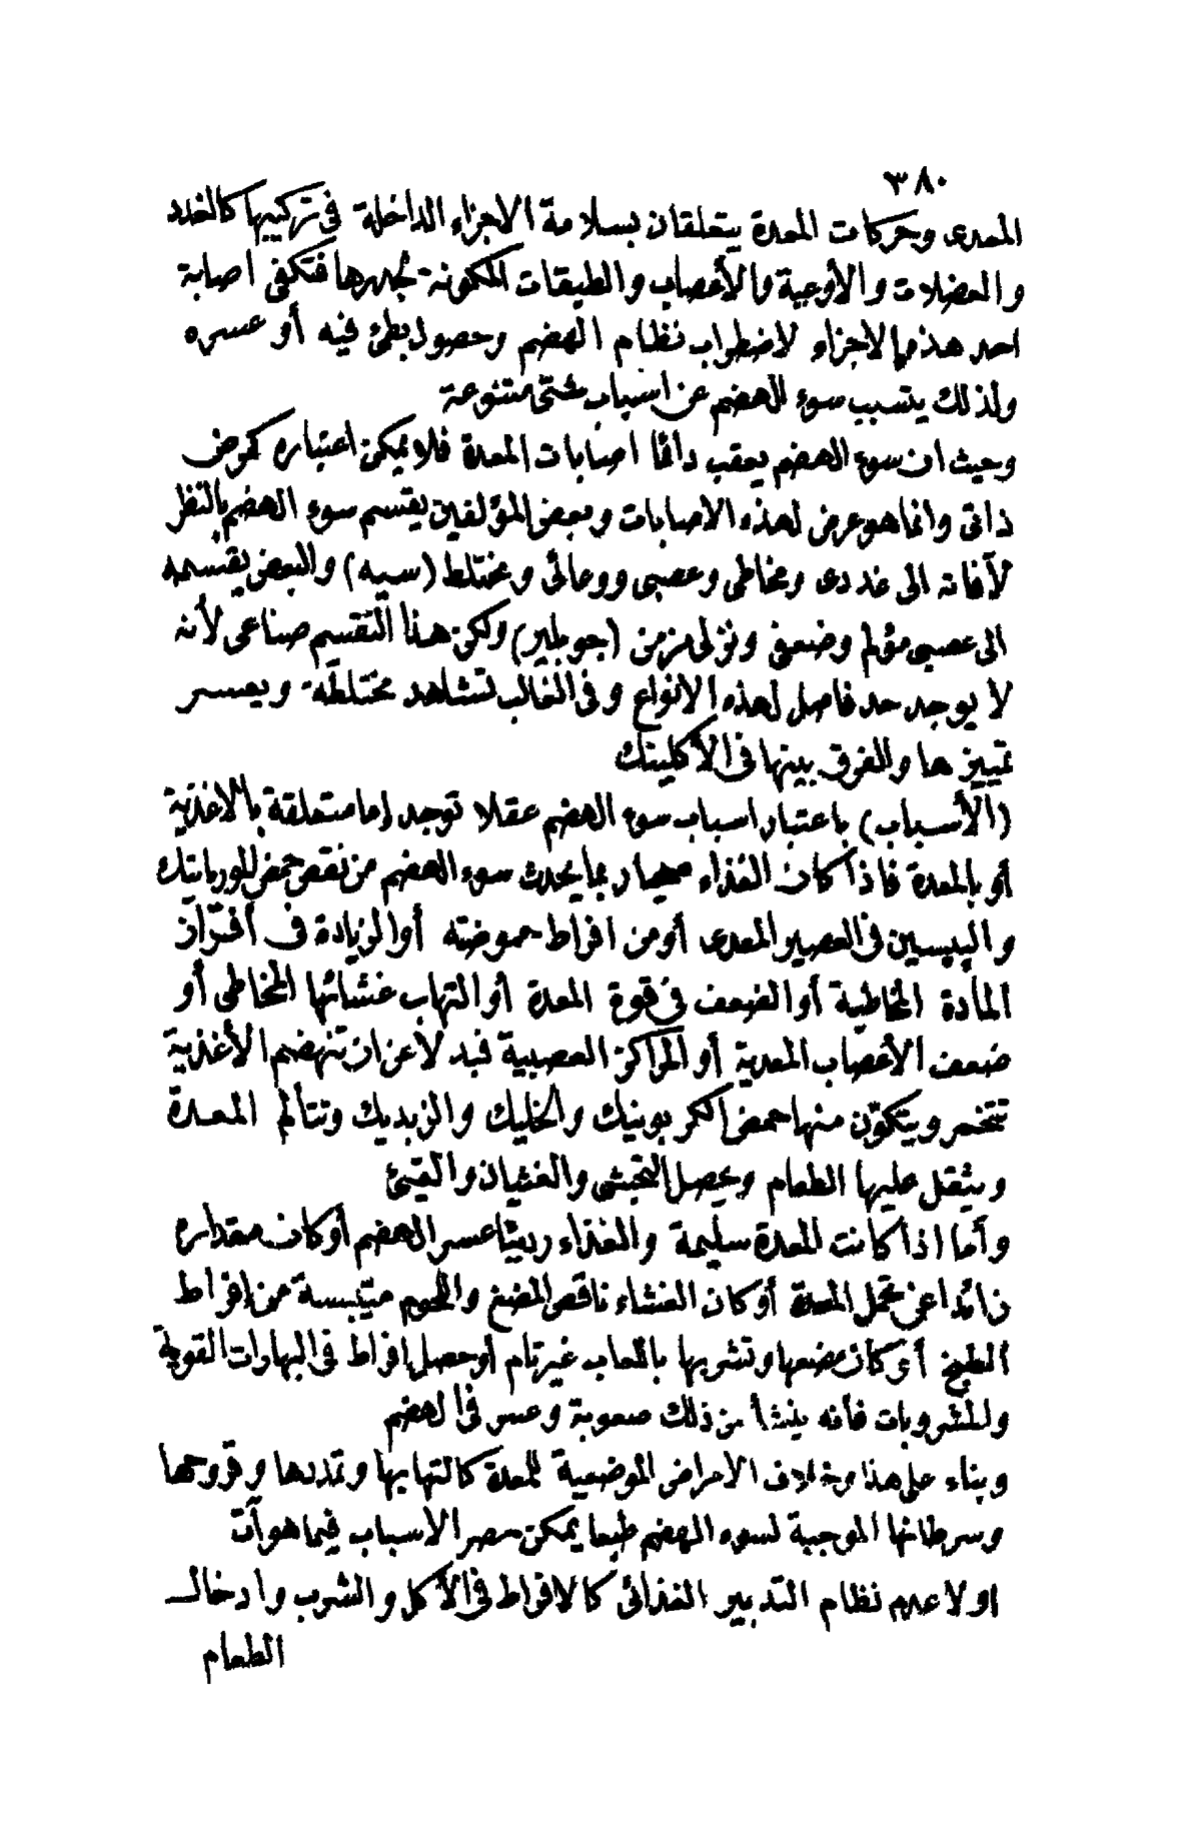 ٣٨٠
المعدى وحركات المعدة يتعلقان بسلامة الاجزاء الداخلة فى تركيبها كالغدد
والعضلات والأوعية والأعصاب والطبقات المكونة لجدرها فتكفى اصابة
احد هذه الاجزاء لاضطراب نظام الهضم وحصول بطئ فيه أو عسره
ولذلك يتسبب سوء الهضم عن اسباب شتى متنوعة
وحيث ان سوء الهضم يعقب دائما اصابات المعدة فلا يمكن اعتباره كمرض
ذاتى وانما هو عرض لهذه الاصابات وبعض المؤلفين يقسم سوء الهضم بالنظر
لآفاته الى غددى ومخاطى وعصبى ووعائى ومختلط (سيه) والبعض يقسمه
الى عصبى مؤلم وضعفى ونزلى مزمن (جوبلير) ولكن هذا التقسم صناعى لأنه
لا يوجد حد فاصل لهذه الانواع وفى الغالب تشاهد مختلطة ويعسر
تمييزها والفرق بينها فى الأكلينك
(الأسباب) باعتبار اسباب سوء الهضم عقلا توجد إما متعلقة بالاغذية
أو بالمعدة فاذا كان الغذاء جيدا ربما يحدث سوء الهضم من نقص حمض اللوريايتك
والپپسين فى العصير المعدى أو من افراط حموضته أو الزيادة فى افتراز
المادة المخاطية أو الضعف فى قوة المعدة أو التهاب غشائها المخاطى أو
ضعف الأعصاب المعدية أو المراكز العصبية فبدلا عن ان تنهضم الأغذية
تتخمر ويتكوّن منها حمض الكربونيك والخليك والزبديك وتتألم المعدة
ويثقل عليها الطعام ويحصل التجشى والغثيان والقيئ
وأما اذا كانت المعدة سليمة والغذاء رديئا عسر الهضم أو كان مقداره
زائدا عن تحمل المعدة أو كان الغذاء ناقص المضغ واللحوم متيبسة من إفراط
الطبخ أو كان مضغها وتشربها باللعاب غير تام أو حصل افراط فى البهارات القوية
والمشروبات فأنه ينشأ من ذلك صعوبة وعسر فى الهضم
وبناء على هذا وخلاف الامراض الموضعية للمعدة كالتهابها وتمددها وقروحها
وسرطانها الموجبة لسوء الهضم طبعا يمكن حصر الاسباب فيما هو آت
اولا عدم نظام التدبير الغذائى كالافراط فى الأكل والشرب وادخال
الطعام